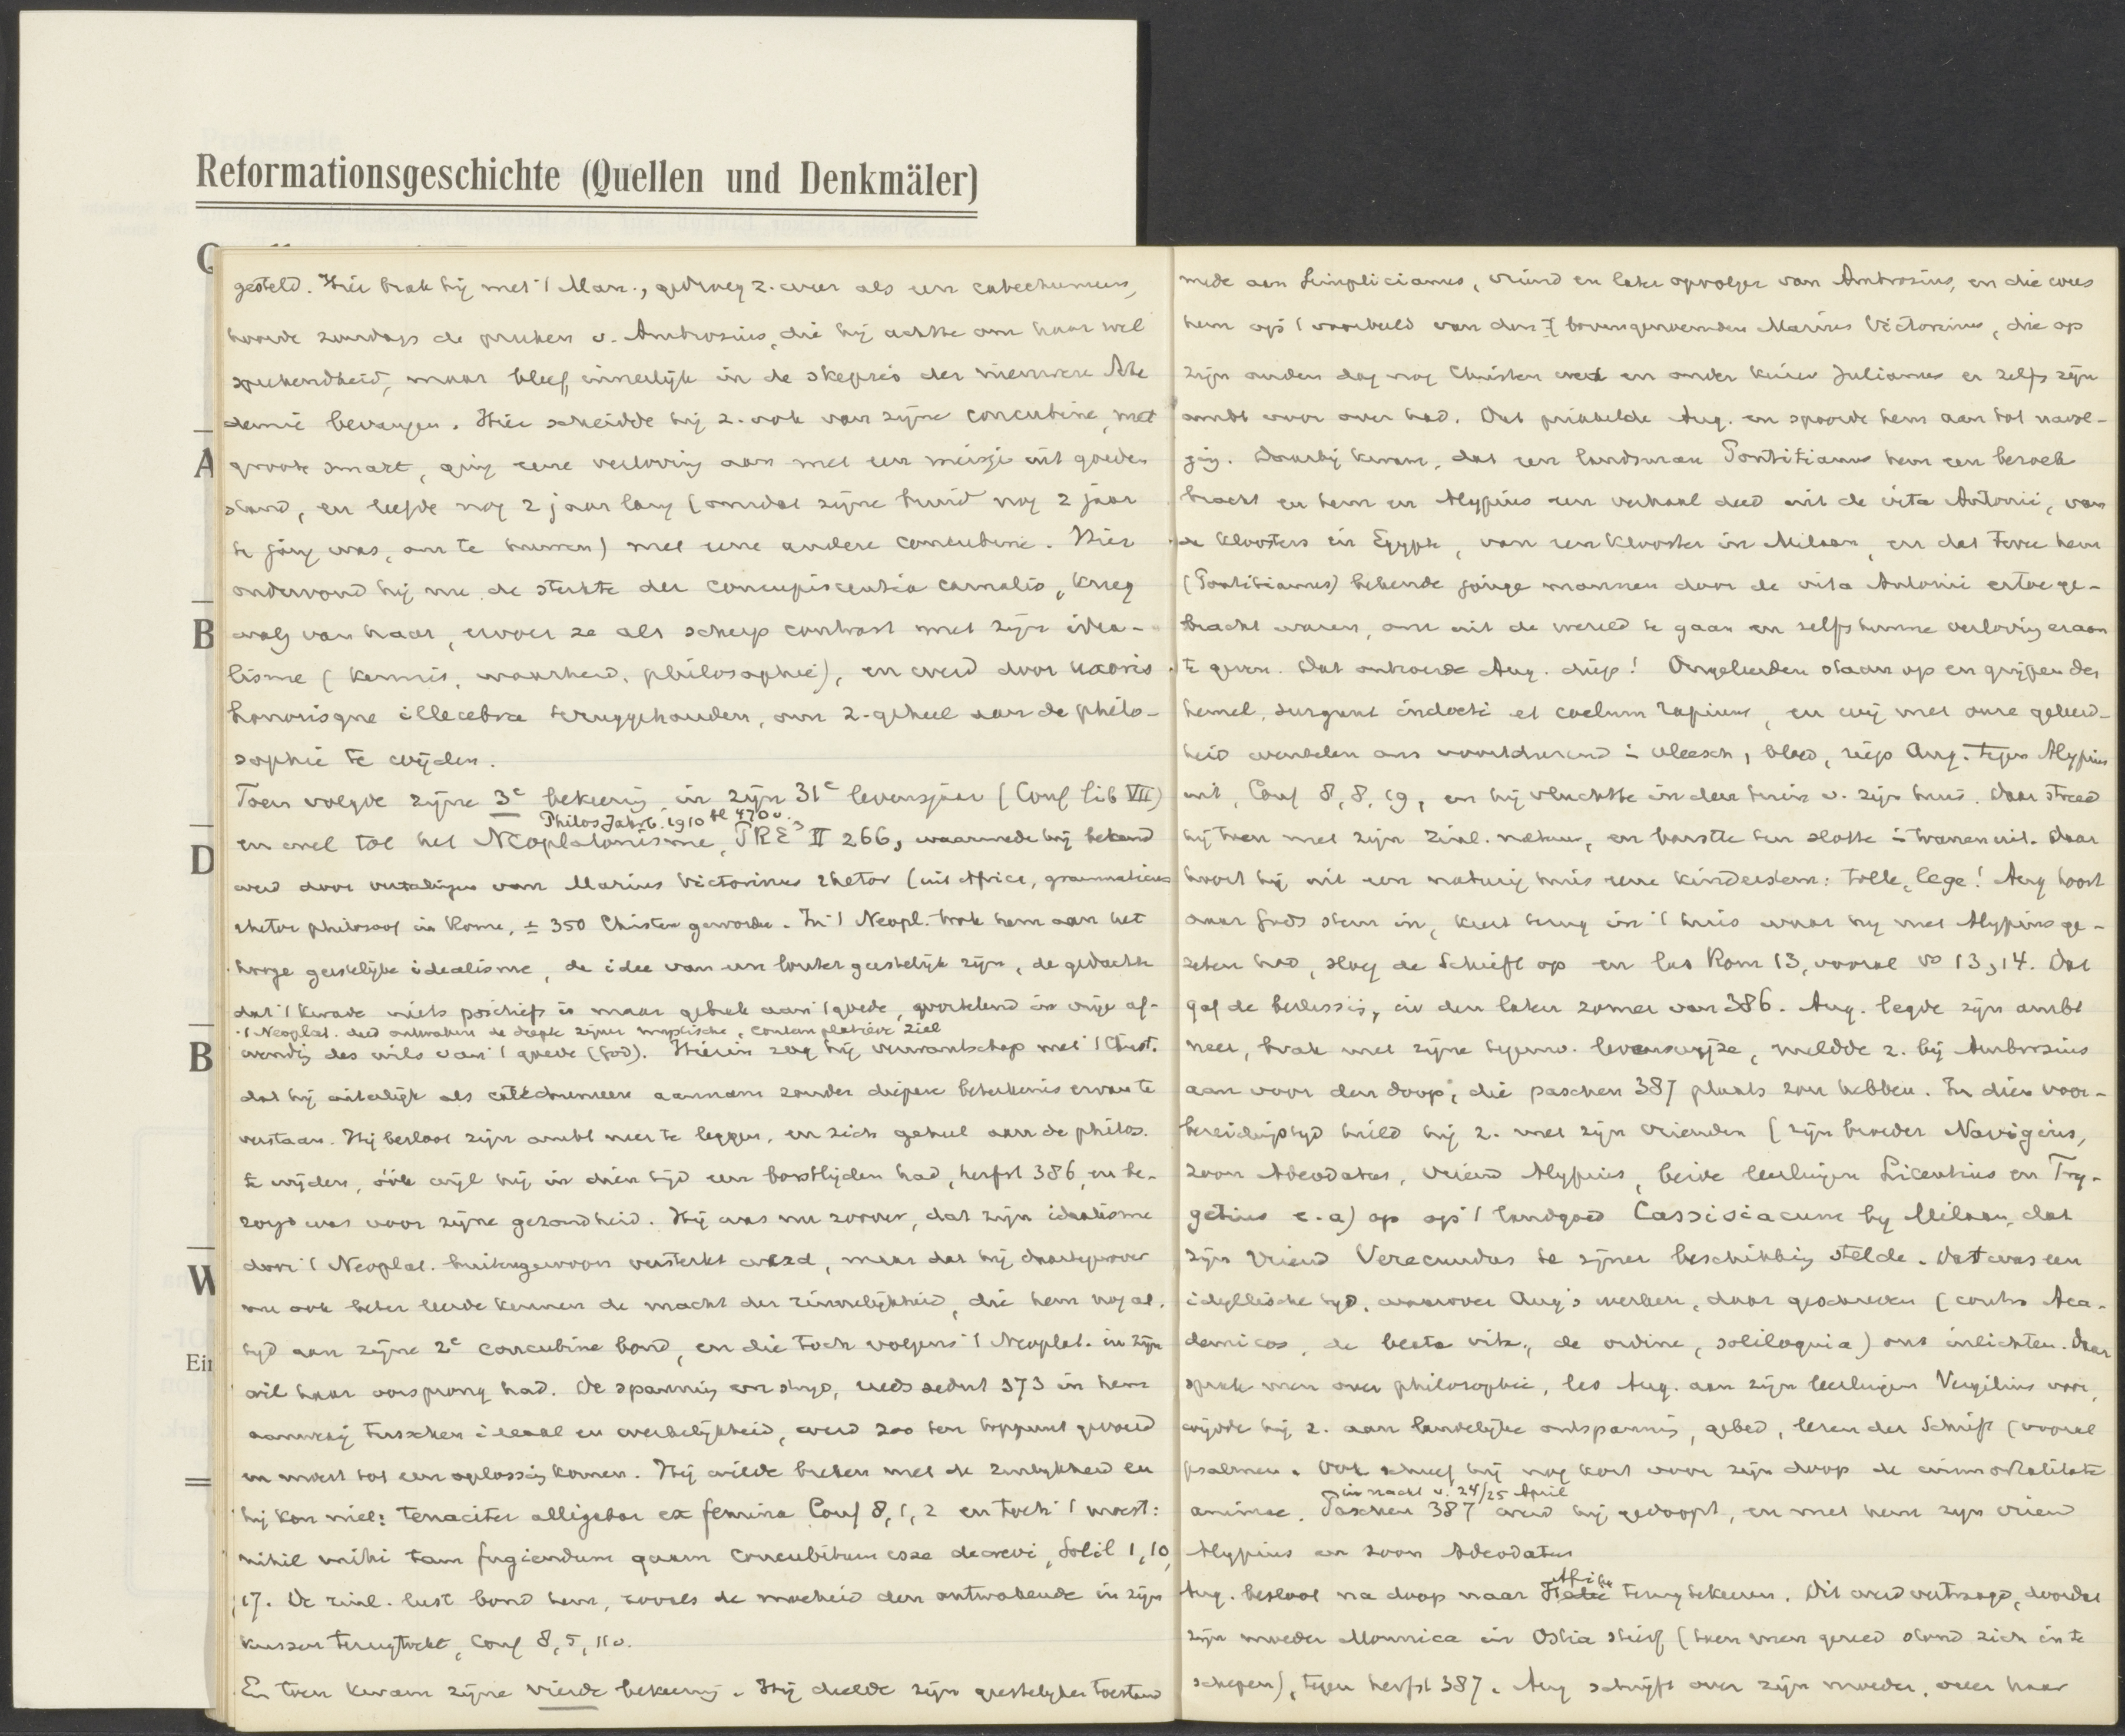 Reformationsgeschichte (Quellen und Denkmäler)
A
B
D
B
W
Ein
gesteld. Hier brak hij met 't Man., gedroeg z. weer als een catechumeen,
hoorde zondags de preken v. Ambrosius, die hij achtte om haar wel
sprekendheid, maar bleef innerlijk in de skepsis der nieuwere Aka
demie bevangen. Hier scheidde hij z. ook van zijne concubine, met
groote smart, ging eene verloving aan met een meisje uit goeden
stand, en leefde nog 2 jaar lang (omdat zijne bruid nog 2 jaar
te jong was, om te huwen) met eene andere concubine. Hier
ondervond hij nu de sterkte der concupiscentia carnalis, kreeg
walg van haar, ervoer ze als scherp contrast met zijn idea-
lisme (kennis, waarheid, philosophie), en werd door uxoris
honorisque illecebra teruggehouden, om z. geheel aan de philo-
sophie te wijden.
Toen volgde zijne 3e bekeering in zijn 31e levensjaar (Conf lib VII)
Philos Jahrb. 1910 bl 470 v.
en wel tot het Neoplatonisme, PRE3 II 266, waarmede hij bekend
werd door vertalingen van Marius Victorinus rhetor (uit Africa, grammaticus
rhetor philosoof in Rome, ± 350 Christen geworden. In 't Neopl. trok hem aan het
hooge geestelijke idealisme, de idee van een louter geestelijk zijn, de gedachte
dat 't kwade niets positiefs is maar gebrek aan 't goede, wortelend in vrije af-
't Neoplat. deed ontwaken de diepte zijner mystische, contemplatieve ziel
wending des wils van 't goede (God). Hierin zag hij verwantschap met 't Christ.
dat hij uiterlijk als catechumeen aannam zonder diepere beteekenis ervan te
verstaan. Hij besloot zijn ambt neer te leggen, en zich geheel aan de philos.
te wijden, óók wijl hij in dien tijd een borstlijden had, herfst 386, en be-
zorgd was voor zijne gezondheid. Hij was nu zoover, dat zijn idealisme
door 't Neoplat. buitengewoon versterkt werd, maar dat hij daartegenover
nu ook beter leerde kennen de macht der zinnelijkheid, die hem nog al.
tijd aan zijne 2e concubine bond, en die toch volgens 't Neoplat. in zijn
wil haar oorsprong had. De spanning en strijd, reeds sedert 373 in hem
aanwezig tusschen ideaal en werkelijkheid, werd zoo ten toppunt gevoerd
en moest tot een oplossing komen. Hij wilde breken met de zinlijkheid en
hij kon niet: tenaciter alligabar ex femina Conf 8,1,2 en toch 't moest:
nihil mihi tam fugiendum quam concubitum esse decrevi, Solil 1,10,
17. De zinl. lust bond hem, zooals de moeheid den ontwakende in zijn
kussen terugtrekt, Conf 8,5,11 v.
En toen kwam zijne vierde bekeering. Hij deelde zijn geestelijken toestand
mede aan Simplicianus, vriend en later opvolger van Ambrosius, en die wees
hem op 't voorbeeld van den bovengenoemden Marius Victorinus, die op
zijn ouden dag nog Christen werd en onder keizer Julianus er zelfs zijn
ambt voor over had. Dat prikkelde Aug. en spoorde hem aan tot navol-
ging. Daarbij kwam, dat een landsman Pontitianus hem een bezoek
bracht en hem en Alypius een verhaal deed uit de vita Antonii, van
de kloosters in Egypte, van een klooster in Milaan, en dat twee hem
(Pontitianus) bekende jonge mannen door de vita Antonii ertoe ge-
bracht waren, om uit de wereld te gaan en zelfs hunne verloving eraan
te geven. Dat ontroerde Aug. diep! Ongeleerden staan op en grijpen den
hemel, surgunt indocti et coelum rapiunt, en wij met onze geleerd-
heid wentelen ons voortdurend in vleesch, bloed, riep Aug. tegen Alypius
uit, Conf 8, 8, 19, en hij vluchtte in den tuin v. zijn huis. Daar streed
hij toen met zijn zinl. natuur, en barstte ten slotte in tranen uit. Daar
hoort hij uit een naburig huis eene kinderstem: tolle, lege! Aug hoort
daar Gods stem in, keert terug in 't huis waar hij met Alypius ge-
zeten had, sloeg de Schrift op en las Rom 13, vooral vs 13,14. Dat
gaf de beslissing, in den laten zomer van 386. Aug. legde zijn ambt
neer, brak met zijne tegenw. levenswijze, meldde z. bij Ambrosius
aan voor den doop, die paschen 387 plaats zou hebben. In dien voor-
bereidingstijd hield hij z. met zijn vrienden (zijn broeder Navigius,
zoon Adeodatus, vriend Alypius, beide leerlingen Licentius en Try-
getius e.a) op op 't landgoed Cassisiacum bij Milaan, dat
zijn vriend Verecundus te zijner beschikking stelde. Dat was een
idyllische tijd, waarover Aug's werken, daar geschreven (contra Aca-
demicos, de beata vita, de ordine, soliloquia) ons inlichten. Daar
sprak men over philosophie, las Aug. aan zijn leerlingen Vergilius voor,
wijdde hij z. aan landelijke ontspanning, gebed, lezen der Schrift (vooral
psalmen. Ook schreef hij nog kort voor zijn doop de immortalitate
in nacht v. 24/25 April
animae. Paschen 387 werd hij gedoopt, en met hem zijn vriend
Alypius en zoon Adeodatus
Afrika
Aug. besloot na doop naar Italië terug te keeren. Dit werd vertraagd, doordat
zijn moeder Monnica in Ostia stierf (toen men gereed stond zich in te
schepen), tegen herfst 387. Aug schrijft over zijn moeder, over haar